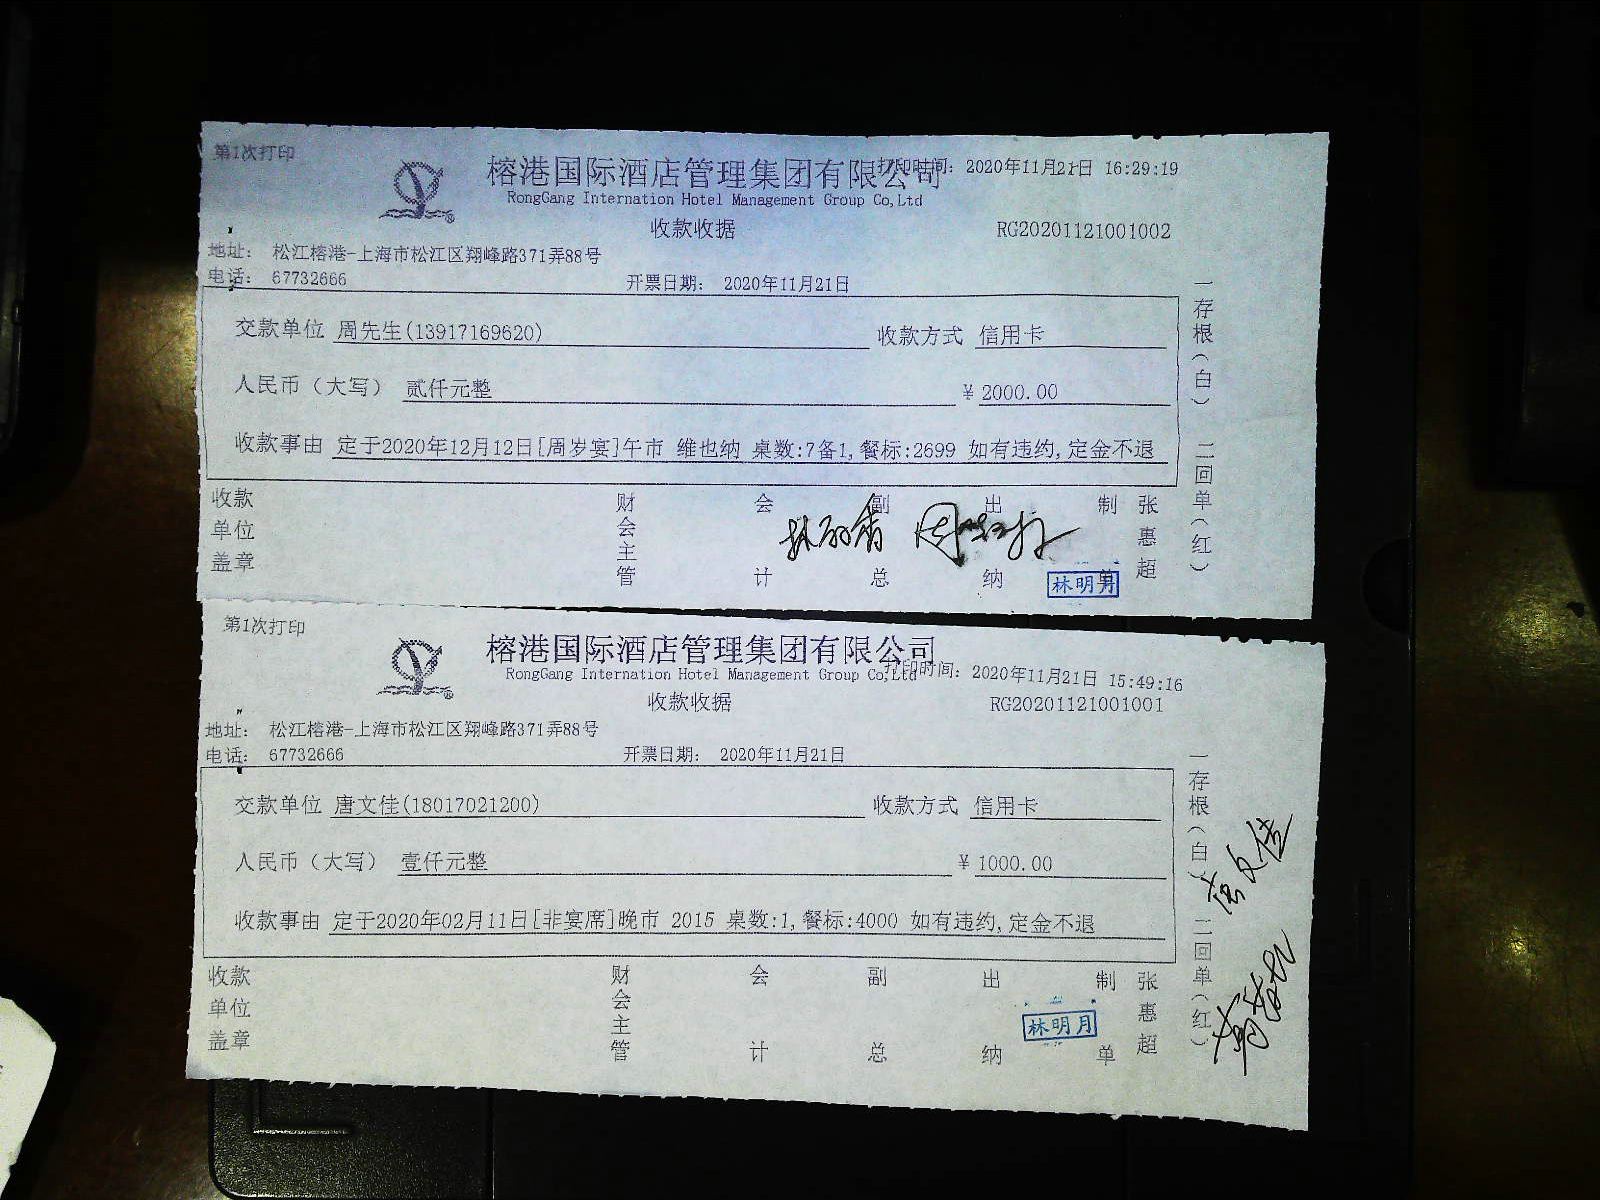 第1次打印
榕港国际酒店管理集团有限公司 打印时间: 2020年11月21日 16:29:19
RongGang Internation Hotel Management Group Co,Ltd
收款收据 RG20201121001002
地址: 松江榕港-上海市松江区翔峰路371弄88号
电话: 67732666 开票日期: 2020年11月21日
交款单位 周先生(13917169620) 收款方式 信用卡
人民币（大写） 贰仟元整 ¥ 2000.00
收款事由 定于2020年12月12日[周岁宴]午市 维也纳 桌数:7备1,餐标:2699 如有违约,定金不退
一存根（白） 二回单（红）
收款单位盖章 财会主管 会计 副总 出纳 制单 张惠超
林明月
第1次打印
榕港国际酒店管理集团有限公司
打印时间: 2020年11月21日 15:49:16
RongGang Internation Hotel Management Group Co,Ltd
收款收据 RG20201121001001
地址: 松江榕港-上海市松江区翔峰路371弄88号
电话: 67732666 开票日期: 2020年11月21日
交款单位 唐文佳(18017021200) 收款方式 信用卡
人民币（大写） 壹仟元整 ¥ 1000.00
收款事由 定于2020年02月11日[非宴席]晚市 2015 桌数:1,餐标:4000 如有违约,定金不退
一存根（白） 二回单（红）
唐文佳
收款单位盖章 财会主管 会计 副总 出纳 制单 张惠超
林明月